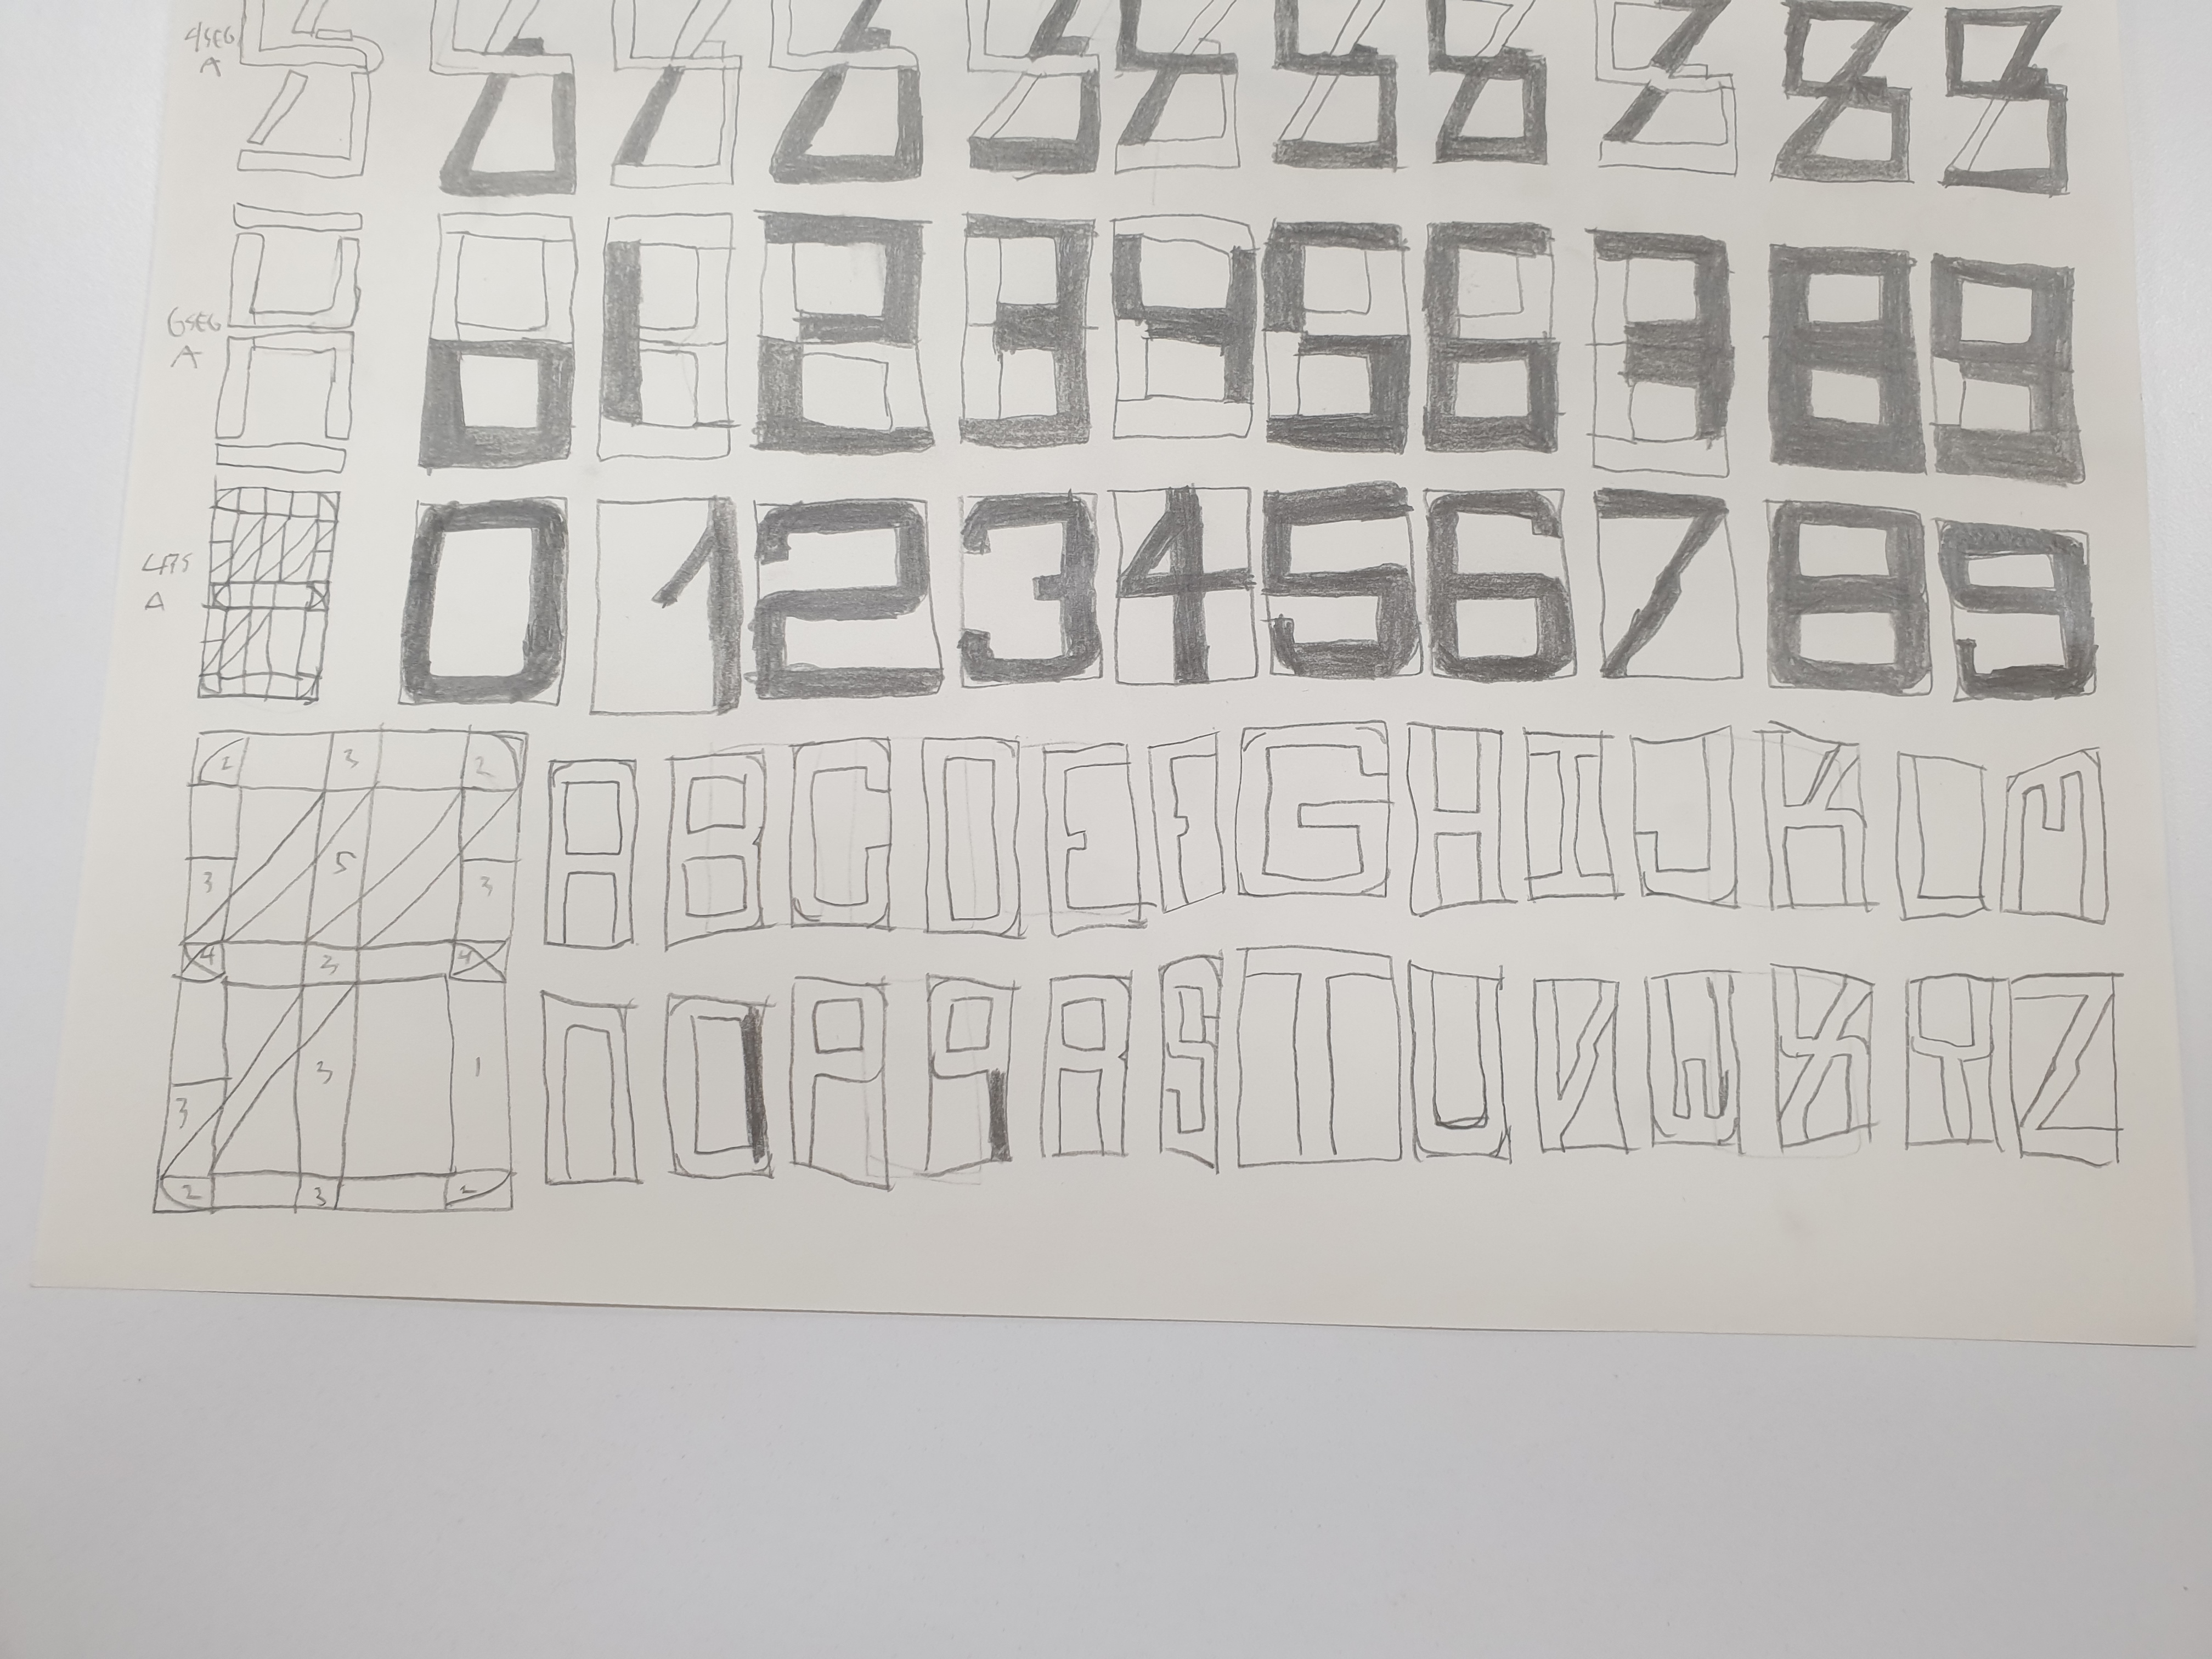 4SEG
A
6SEG
A
0 1 2 3 4 5 6 7 8 9
A
0 1 2 3 4 5 6 7 8 9
2 3 2
5
3 3
4 3 4
3 1
3
2 3 2
A B C D E F G H I J K L M
N O P q R S T U V W X Y Z